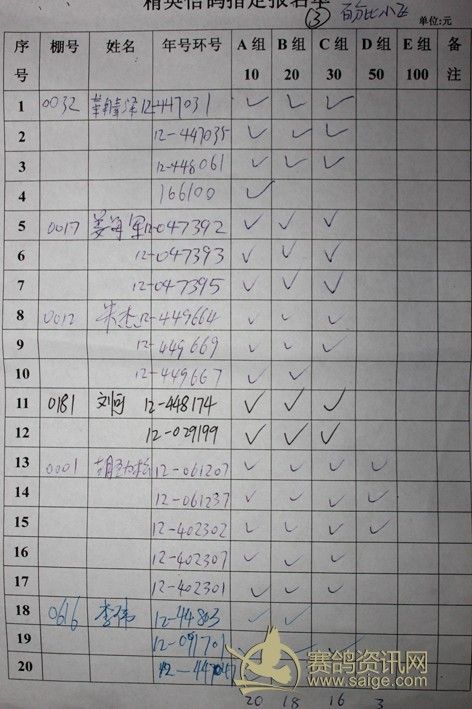 精英信鸽指定报名单
③ 百分比小飞
单位:元
序号 棚号 姓名 年号环号 A组10 B组20 C组30 D组50 E组100 备注
1 0032 12-447031 ✓ ✓ ✓
2 12-447035 ✓ ✓ ✓
3 12-448061 ✓ ✓ ✓
4 166100 ✓
5 0017 姜海军 12-047392 ✓ ✓ ✓
6 12-047393 ✓ ✓ ✓
7 12-047395 ✓ ✓ ✓
8 0012 朱杰 12-449664 ✓ ✓ ✓
9 12-449669 ✓ ✓ ✓
10 12-449667 ✓ ✓
11 0181 刘可 12-448174 ✓ ✓ ✓
12 12-029199 ✓ ✓ ✓
13 0001 12-061207 ✓ ✓ ✓ ✓
14 12-061237 ✓ ✓ ✓ ✓
15 12-402302 ✓ ✓ ✓ ✓
16 12-402307 ✓ ✓ ✓
17 12-402301 ✓ ✓ ✓
18 0616 李伟 12-44803 ✓ ✓
19 12-091701
20
赛鸽资讯网
www.saige.com
20 18 16 3